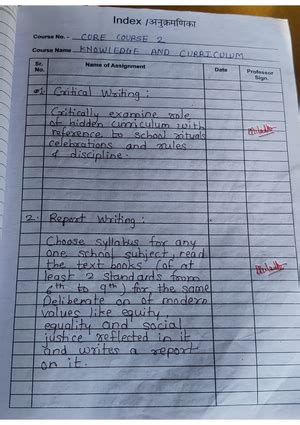 Index /अनुक्रमणिका
Course No. - CORE COURSE 2
Course Name KNOWLEDGE AND CURRICULUM
Sr. No. Name of Assignment Date Professor Sign.
1. Critical Writing :
Critically examine role
of hidden curriculum with
reference to school rituals
celebrations and rules
& discipline.
2. Report Writing :
Choose syllabus for any
one school subject, read
the text books (of at
least 2 standards from
6th to 9th) for the same
Deliberate on of modern
values like equity,
equality and social
justice reflected in it
and writes a report
on it.